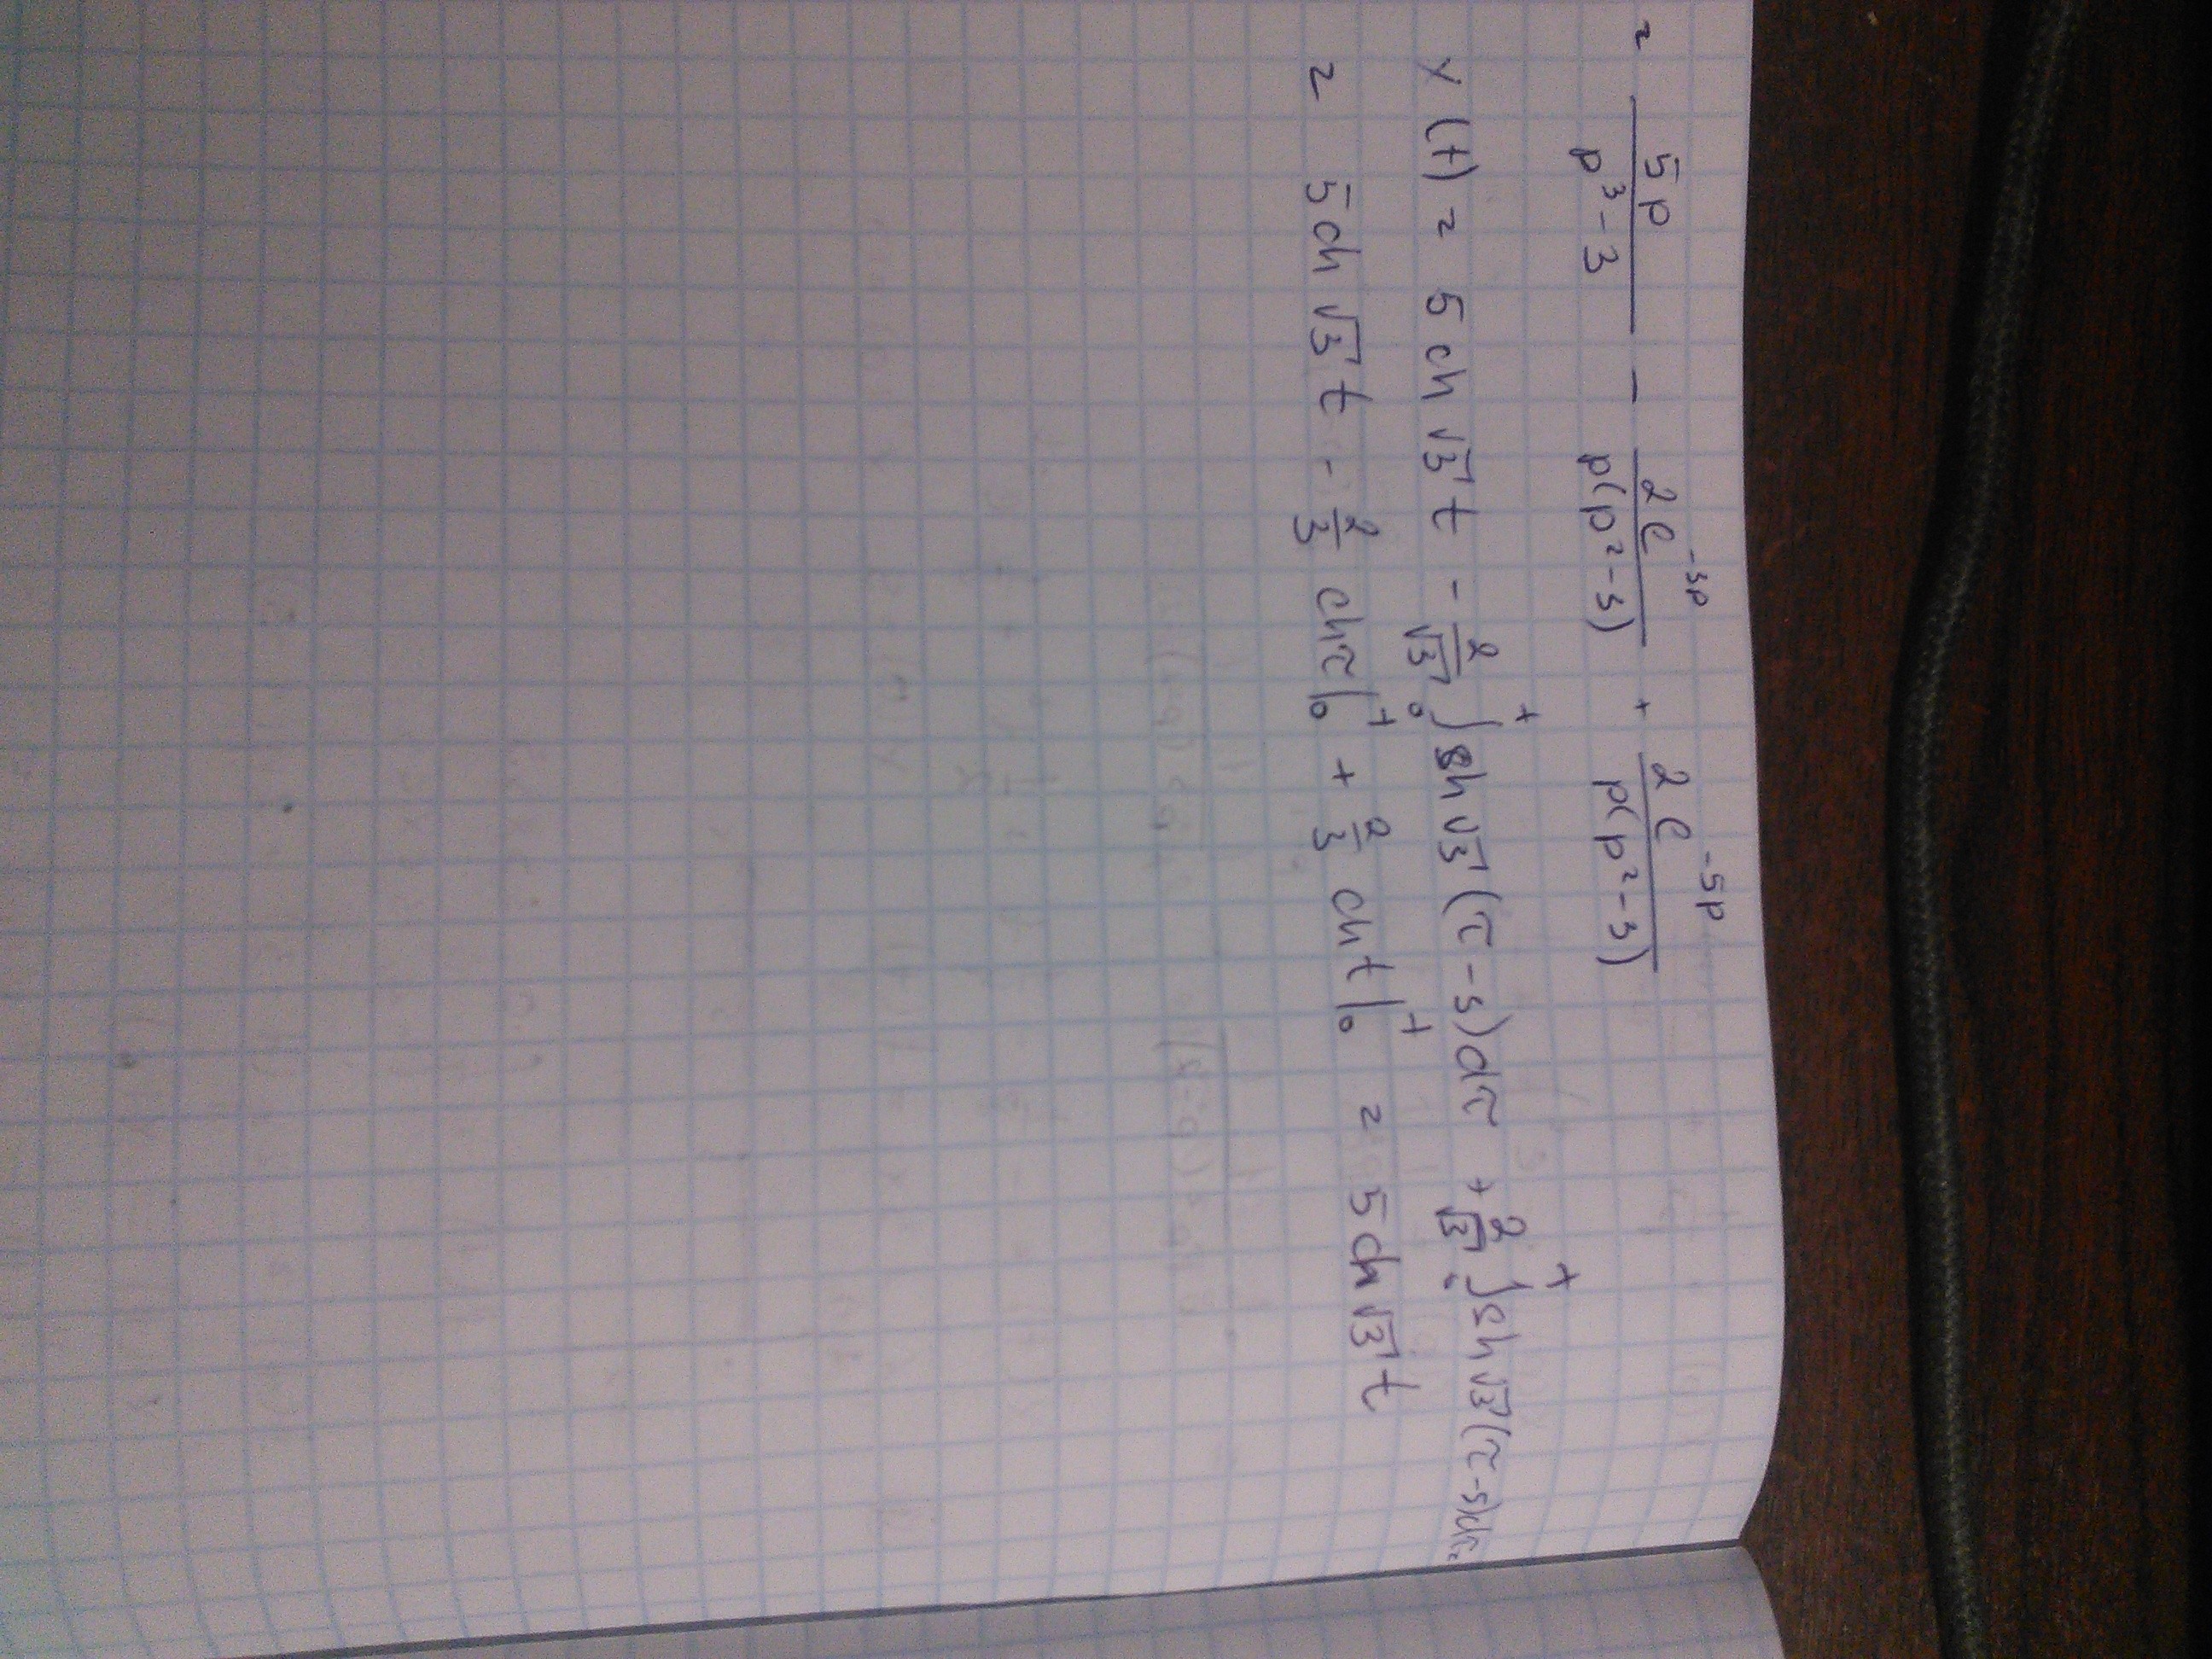 = \frac{5p}{p^3-3} - \frac{2e^{-3p}}{p(p^2-3)} + \frac{2e^{-5p}}{p(p^2-3)}
x(t) = 5ch√3 t - \frac{2}{√3} ∫_0^t sh√3(τ-3)dτ + \frac{2}{√3} ∫_0^t sh√3(τ-5)dτ =
= 5ch√3 t - \frac{2}{3} chτ|_0^t + \frac{2}{3} cht|_0^t = 5ch√3 t